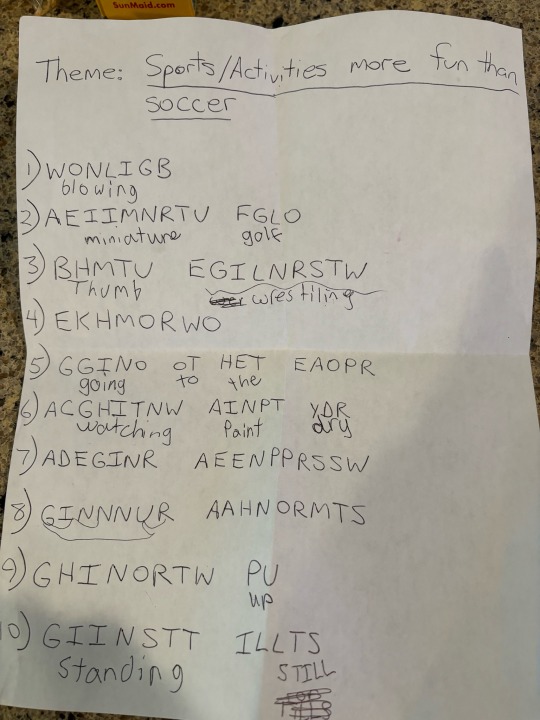 SunMaid.com
Theme: Sports/Activities more fun than
soccer
1) WONLIGB
blowing
2) AEIIMNRTU FGLO
miniature golf
3) BHMTU EGILNRSTW
Thumb wrestiling
4) EKHMORWO
5) GGINO OT HET EAOPR
going to the
6) ACGHITNW AINPT YDR
watching Paint dry
7) ADEGINR AEENPPRSSW
8) GINNNUR AAHNORMTS
9) GHINORTW PU
up
10) GIINSTT ILLTS
Standing STILL